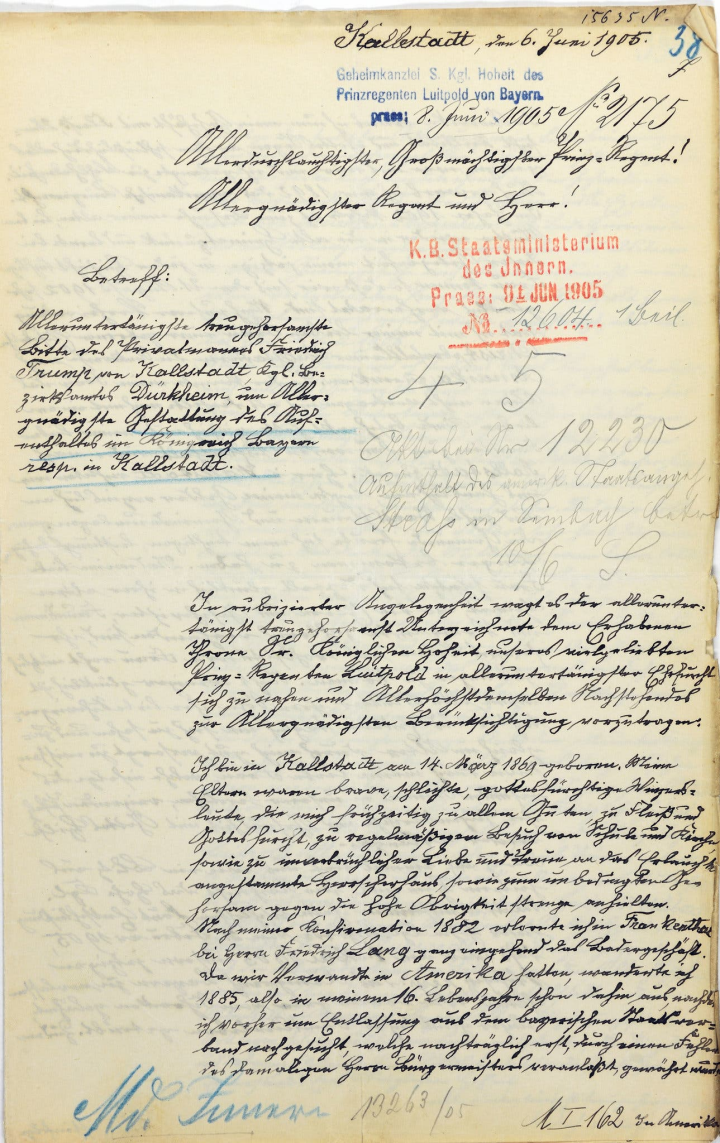 15635 N.
Kallstadt, den 6. Juni 1905.
38
Geheimkanzlei S. Kgl. Hoheit des
Prinzregenten Luitpold von Bayern.
praes: 8. Juni 1905 No 2175
Allerdurchlauchtigster, Großmächtigster Prinz-Regent!
Allergnädigster Regent und Herr!
K.B. Staatsministerium
des Innern.
Praes: 9. JUN. 1905
No 12604 1 Beil.
Betreff:
Alleruntertänigste treugehorsamste
Bitte des Privatmannes Friedrich
Trump von Kallstadt Kgl. Be-
zirksamtes Dürkheim, um Aller-
gnädigste Gestattung des Auf-
enthaltes im Königreich Bayern
resp. in Kallstadt.
4 5
Nr 12230
Aufenthalt des amerik. Staatsangeh.
in betr.
10/6 S.
In rubrizierter Angelegenheit wagt es der allerunter-
tänigst treugehorsamst Unterzeichnete dem Erhabenen
Throne Sr. Königlichen Hoheit unseres vielgeliebten
Prinz-Regenten Luitpold in alleruntertänigster Ehrfurcht
sich zu nahen und Allerhöchstdemselben Nachstehendes
zur Allergnädigsten Berücksichtigung vorzutragen.
Ich bin in Kallstadt am 14. März 1869 geboren. Meine
Eltern waren brave, schlichte, gottesfürchtige Winzers-
leute, die mich frühzeitig zu allem Guten, zu Fleiß und
Gottesfurcht, zu regelmäßigem Besuch von Schule und Kirche,
sowie zu unverbrüchlicher Liebe und Treue an das Erlauchte
angestammte Herrscherhaus sowie zum unbedingten Ge-
horsam gegen die hohe Obrigkeit strenge anhielten.
Nach meiner Konfirmation 1882 erlernte ich in Frankenthal
bei Herrn Friedrich Lang ganz eingehend das Badergeschäft.
Da wir Verwandte in Amerika hatten, wanderte ich
1885, also in meinem 16. Lebensjahre schon dahin aus nachdem
ich vorher um Entlassung aus dem bayerischen Staatsver-
band nachgesucht, welche nachträglich erst, durch einen Fehler
des damaligen Herrn Bürgermeisters veranlaßt, gewährt wurde.
Md. Innern 13263/05
M I 162 In Amerika